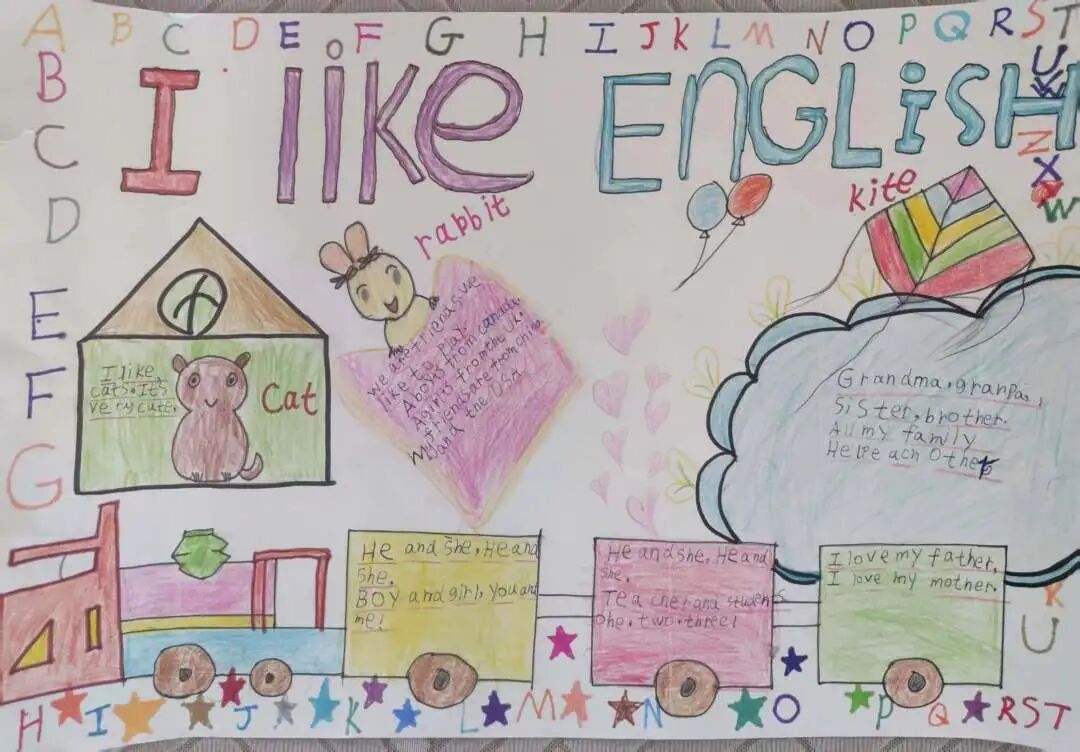 A B C D E F G H I J K L M N O P Q R S T
U
V
Z
X
Y
W
B
C
D
E
F
G
I like ENGLiSH
rabbit
kite
I like
cats. It's
very cute.
Cat
we are friends we
like to play.
A boys from canada.
A girls from the UK.
my friends are from china
and the USA
Grandma, granpa,
Sister, brother.
All my family
Helpe each Other
He and she, He and
she.
BOY and girl, you and
me!
He and she, He and
she,
Teacher and students
One, two, three!
I love my father,
I love my mother.
R
U
H I J K L M N O P Q R S T